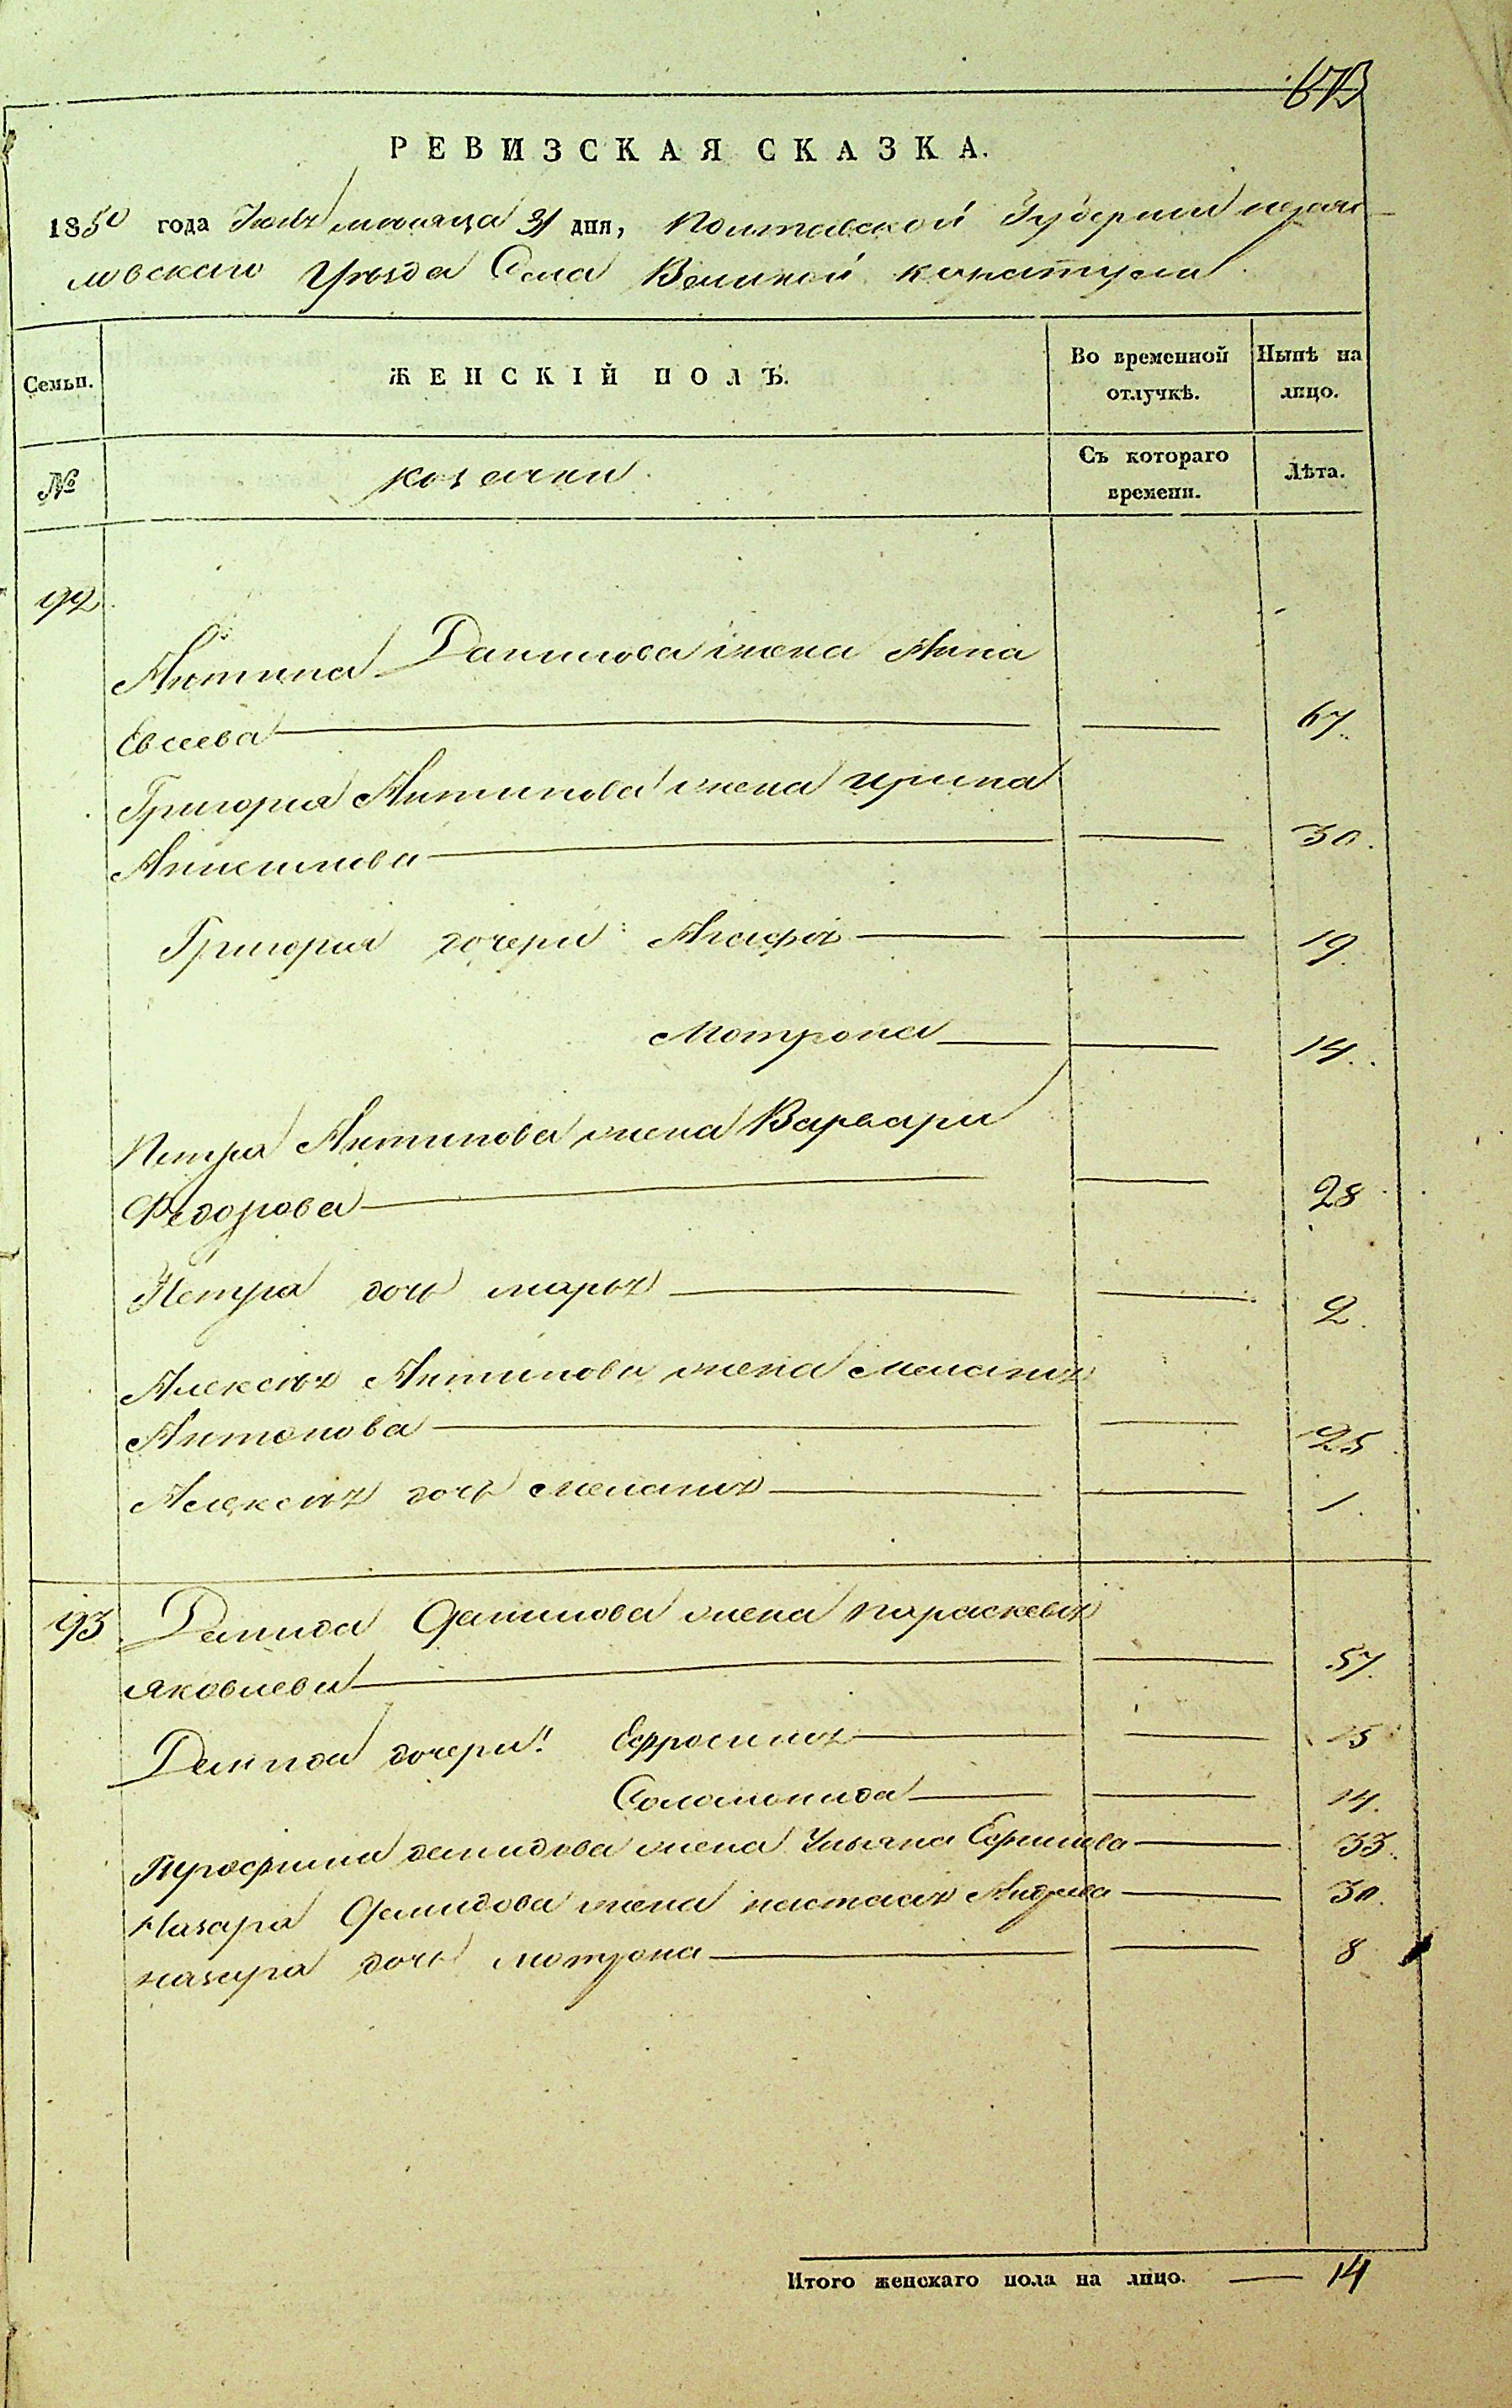 673
РЕВИЗСКАЯ СКАЗКА.
1850 года Июля месяца 31 дня, Полтавской Губернии переяс-
ловскаго Уезда Села Великой каратули
Семьи. ЖЕНСКІЙ ПОЛЪ. Во временной отлучкѣ. Нынѣ на лицо.
№ козачки Съ котораго времени. Лѣта.
192
Антипа Данилова жена Анна
Евсеева — — 67.
Григория Антипова жена Ирина
Анисимова — — 30.
Григория дочери: Агафія — — 19.
Мотрона — — 14.
Петра Антипова жена Варвара
Федорова — — 28
Петра дочь марья — — 2.
Алексея Антипова жена Мелания
Антонова — — 25
Алексея дочь мелания — — 1.
193 Демида Данилова жена параскевия
яковлева — — 57.
Демида дочери: Ефросиния — — 15
Соломонида — — 14.
Трофима демидова жена Ульяна Ефимова — 33.
Назара Демидова жена настасия Андреева — 30.
назара дочь мотрона — — 8
Итого женскаго пола на лицо. — 14